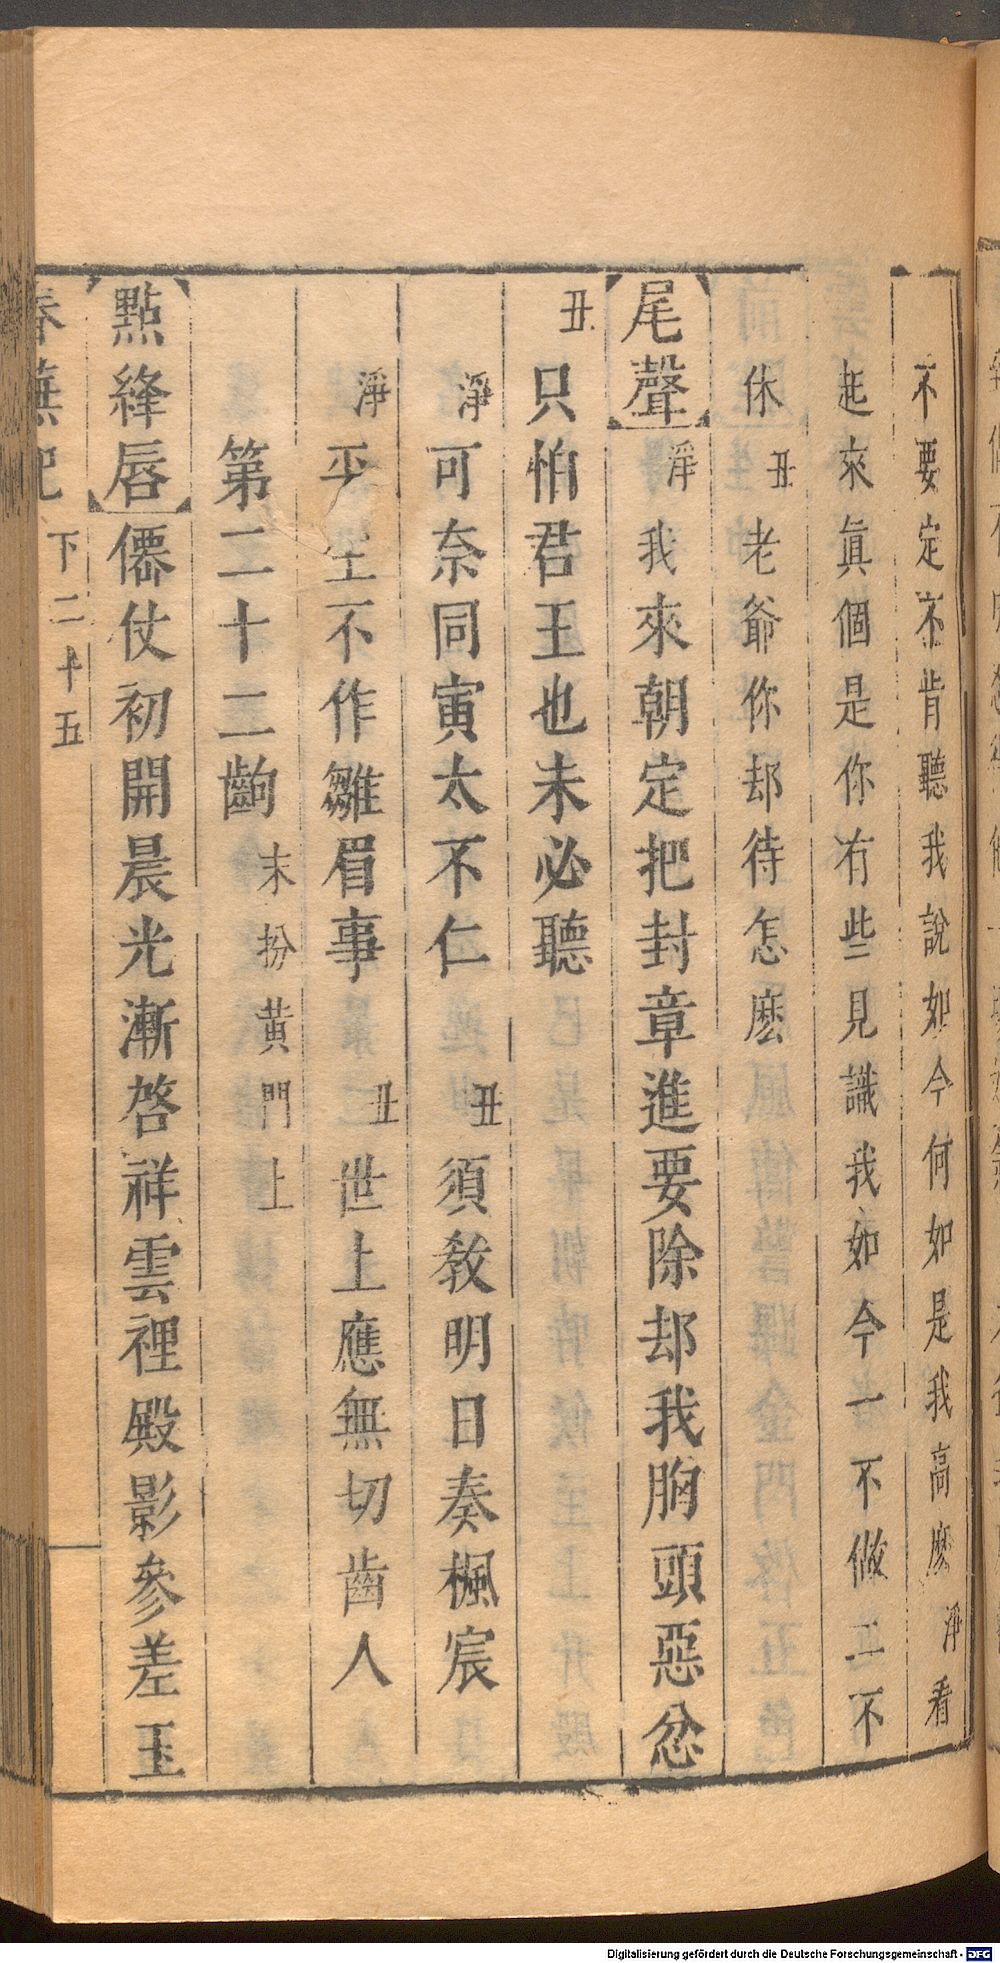 不要定不肯聽我說如今何如是我高麽淨看
起來眞個是你有些見識我如今一不做二不
休丑老爺你却待怎麽
尾聲淨我來朝定把封章進要除却我胸頭惡忿
丑只怕君王也未必聽
淨可奈同寅太不仁丑須敎明日奏楓宸
淨平生不作皺眉事丑世上應無切齒人
第二十二齣末扮黃門上
點絳唇僊仗初開晨光漸啓祥雲裡殿影參差玉
春蕪記
下二十五
Digitalisierung gefördert durch die Deutsche Forschungsgemeinschaft - DFG